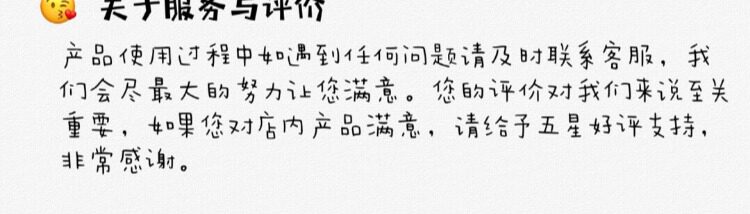 关于服务与评价
产品使用过程中如遇到任何问题请及时联系客服，我
们会尽最大的努力让您满意。您的评价对我们来说至关
重要，如果您对店内产品满意，请给予五星好评支持，
非常感谢。